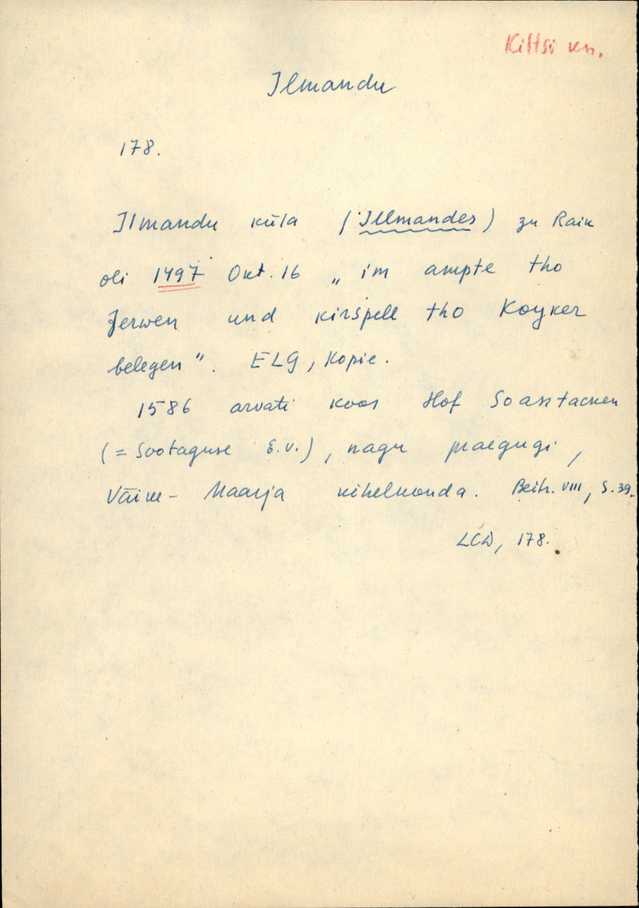 Kiltsi kn.
Ilmandu
178.
Ilmandu küla (Illmandes) zu Raik
oli 1497 Okt. 16 „im ampte tho
Jerwen und kirspell tho Koyker
belegen". ELG, Kopie.
1586 arvati koos Hof Soastacken
(= Sootaguse E.V.), nagu praegugi,
Väike-Maarja kihelkonda. Beih. VIII, S. 39.
LCD, 178.